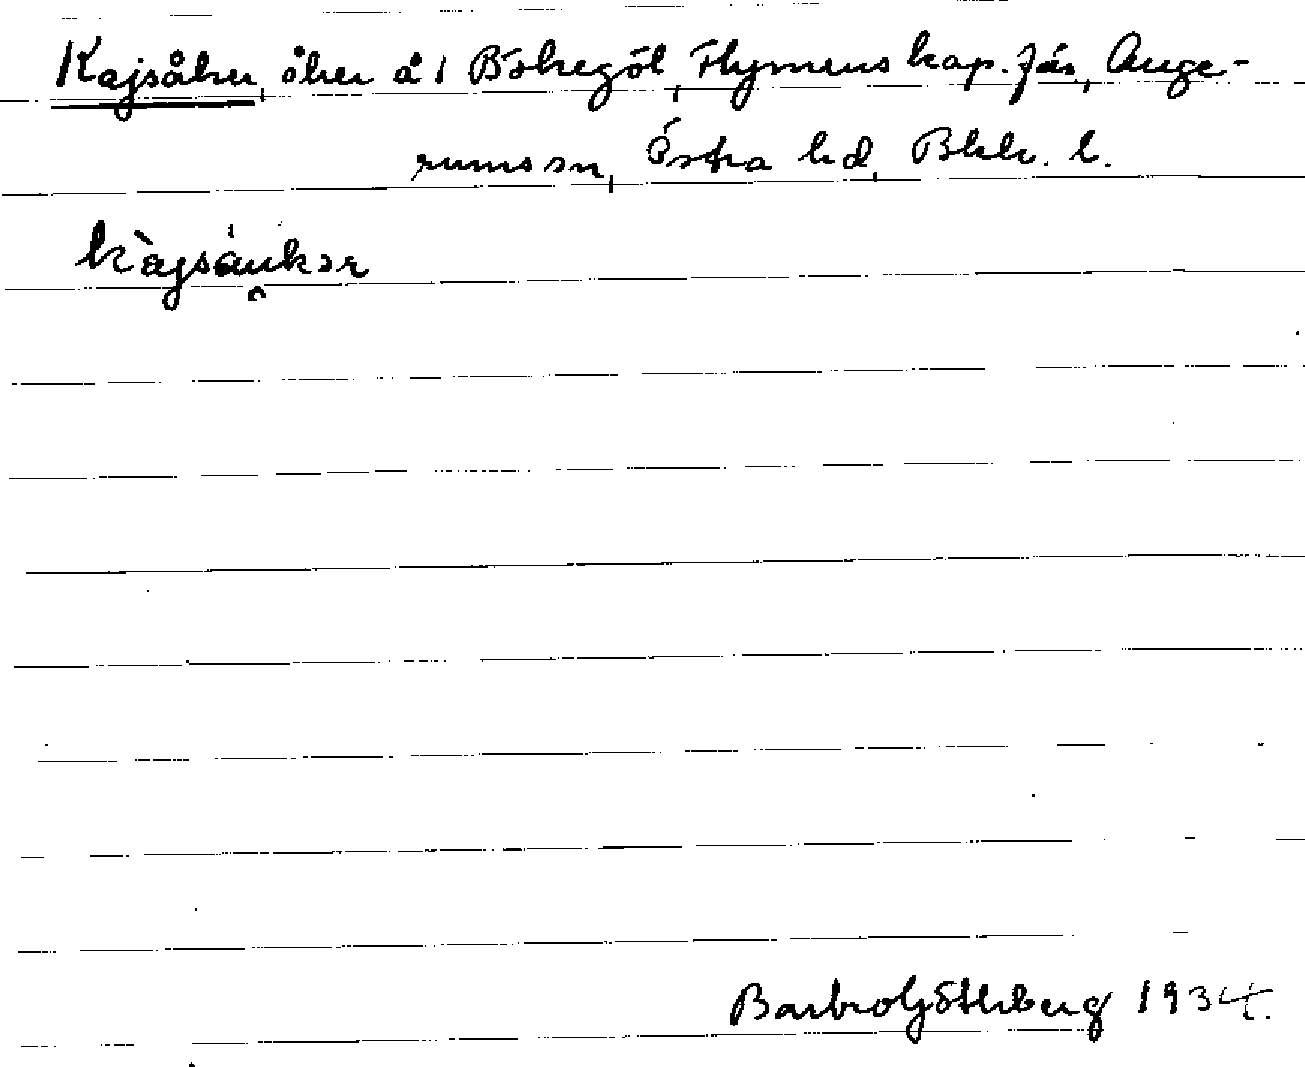 Kajsåker, åker å 1 Bökegöl, Flymens kap. förs., Auge-
rums sn, Östra hd, Blek. l.
kàjsåukər
Barbro Göthberg 1934.